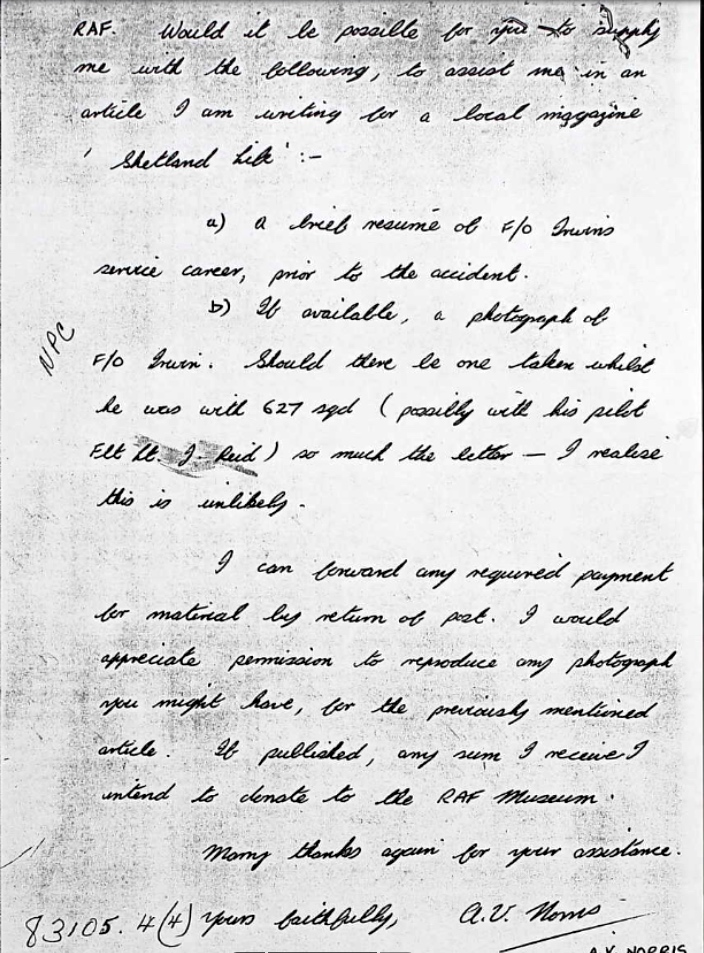 RAF. Would it be possible for you to supply
me with the following, to assist me in an
article I am writing for a local magazine
' Shetland Life' :-
a) A brief resumé of F/O Irwins
service career, prior to the accident.
b) If available, a photograph of
NPC
F/O Irwin. Should there be one taken whilst
he was with 627 sqd (possibly with his pilot
Flt Lt. J. Reid) so much the better — I realise
this is unlikely.
I can forward any required payment
for material by return of post. I would
appreciate permission to reproduce any photograph
you might have, for the previously mentioned
article. If published, any sum I receive I
intend to donate to the RAF Museum.
Many thanks again for your assistance.
83105. 4(4) Yours faithfully, A.V. Norris
A.V. NORRIS